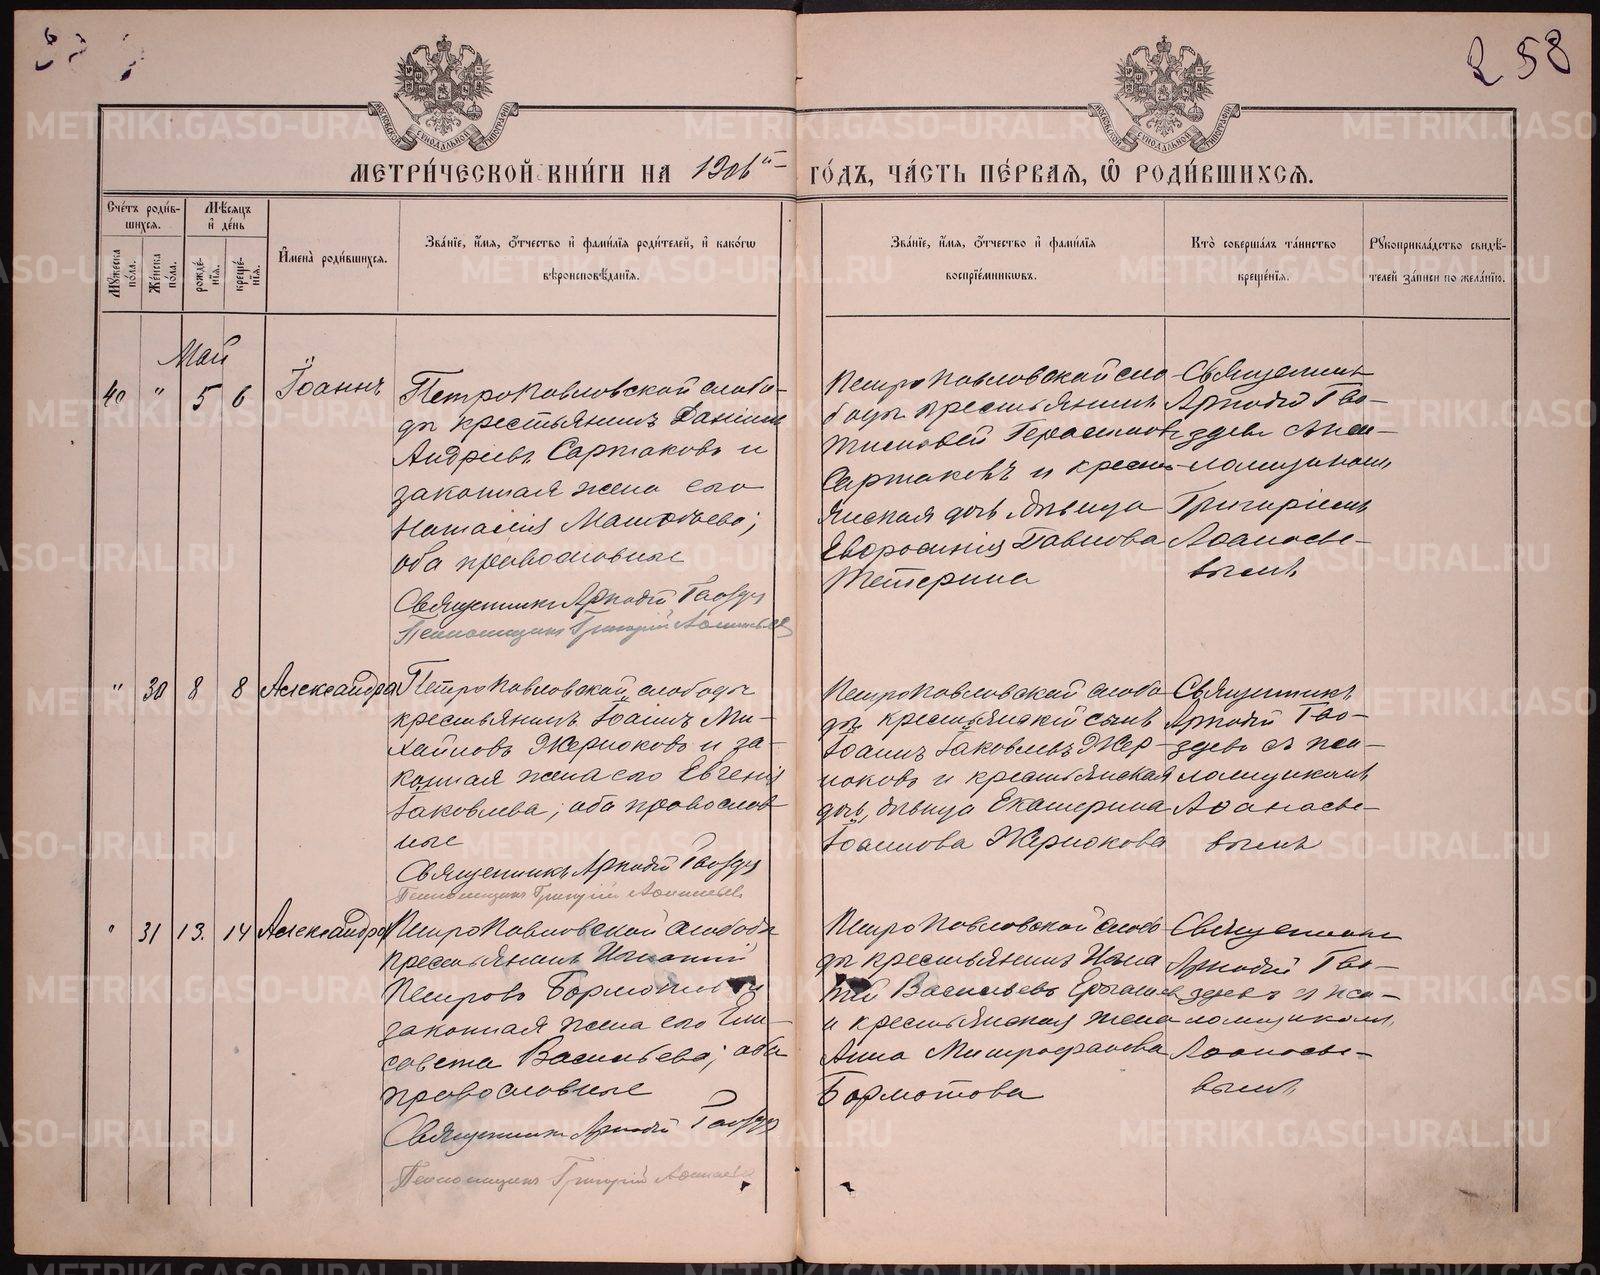 258
МОСКОВСКОЙ СѴНОДАЛЬНОЙ ТИПОГРАФІИ
МОСКОВСКОЙ СѴНОДАЛЬНОЙ ТИПОГРАФІИ
МЕТРИ́ЧЕСКОЙ КНИ́ГИ НА 1906й ГО́ДЪ, ЧА́СТЬ ПЕ́РВАЯ, Ѡ РОДИ́ВШИХСЯ.
Сче́тъ роди́в-
шихся.
Мѣ́сяцъ
и҆ де́нь
Му́жеска
по́ла.
Же́нска
по́ла.
рожде́-
нїя.
креще́-
нїя.
И҆мена̀ роди́вшихся.
Зва́нїе, и҆́мя, ѻ҆́тчество и҆ фами́лїя роди́телей, и҆ како́гѡ
вѣроисповѣ́данїя.
Зва́нїе, и҆́мя, ѻ҆́тчество и҆ фами́лїя
воспрїе́мникѡвъ.
Кто̀ соверша́лъ та́инство
креще́нїя.
Рукоприкла́дство свидѣ́-
телей за́писи по жела́нїю.
Май
40 " 5 6 Іоаннъ
Петропавловской слобо-
ды крестьянинъ Даніилъ
Андреевъ Сартаковъ и
законная жена его
Наталія Матвѣева;
оба православные
Священникъ Аркадій Гвоздевъ
Псаломщикъ Григорій Аѳанасьевъ
Петропавловской сло-
боды крестьянинъ
Тимоѳей Герасимовъ
Сартаковъ и кресть-
янская дочь дѣвица
Евфросинія Павлова
Тетерина
Священникъ
Аркадій Гво-
здевъ с псa-
ломщикомъ
Григоріемъ
Аѳанасье-
вымъ
" 30 8 8 Александра
Петропавловской слободы
крестьянинъ Іоаннъ Ми-
хайловъ Жернаковъ и за-
конная жена его Евгенія
Іаковлева; оба православ-
ные
Священникъ Аркадій Гвоздевъ
Псаломщикъ Григорій Аѳанасьевъ
Петропавловской слобо-
ды крестьянскій сынъ
Іоаннъ Іаковлевъ Жер-
наковъ и крестьянская
дочь, дѣвица Екатерина
Іоаннова Жернакова
Священникъ
Аркадій Гво-
здевъ съ пса-
ломщикомъ
Аѳанасье-
вымъ
" 31 13. 14 Александра
Петропавловской слободы
крестьянинъ Игнатій
Петровъ Бормотовъ и
законная жена его Ели-
савета Васильева; оба
православные
Священникъ Аркадій Гвоздевъ
Псаломщикъ Григорій Аѳанасьевъ
Петропавловской слобо-
ды крестьянинъ Игна-
тій Васильевъ
и крестьянская жена
Анна Митрофанова
Бормотова
Священникъ
Аркадій Гво-
здевъ съ пса-
ломщикомъ
Аѳанасье-
вымъ
METRIKI.GASO-URAL.RU